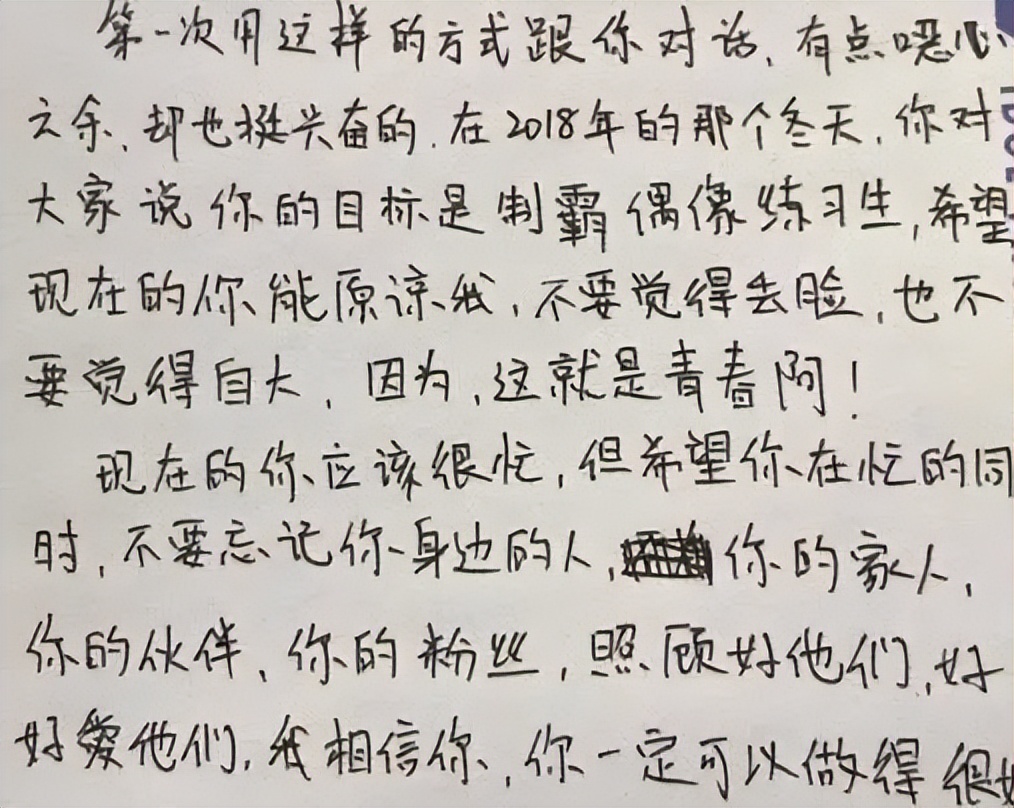 第一次用这样的方式跟你对话，有点恶心
之余，却也挺兴奋的．在2018年的那个冬天，你对
大家说你的目标是制霸偶像练习生，希望
现在的你能原谅我，不要觉得丢脸，也不
要觉得自大，因为，这就是青春阿！
现在的你应该很忙，但希望你在忙的同
时，不要忘记你身边的人，你的家人，
你的伙伴，你的粉丝，照顾好他们，好
好爱他们，我相信你，你一定可以做得很好